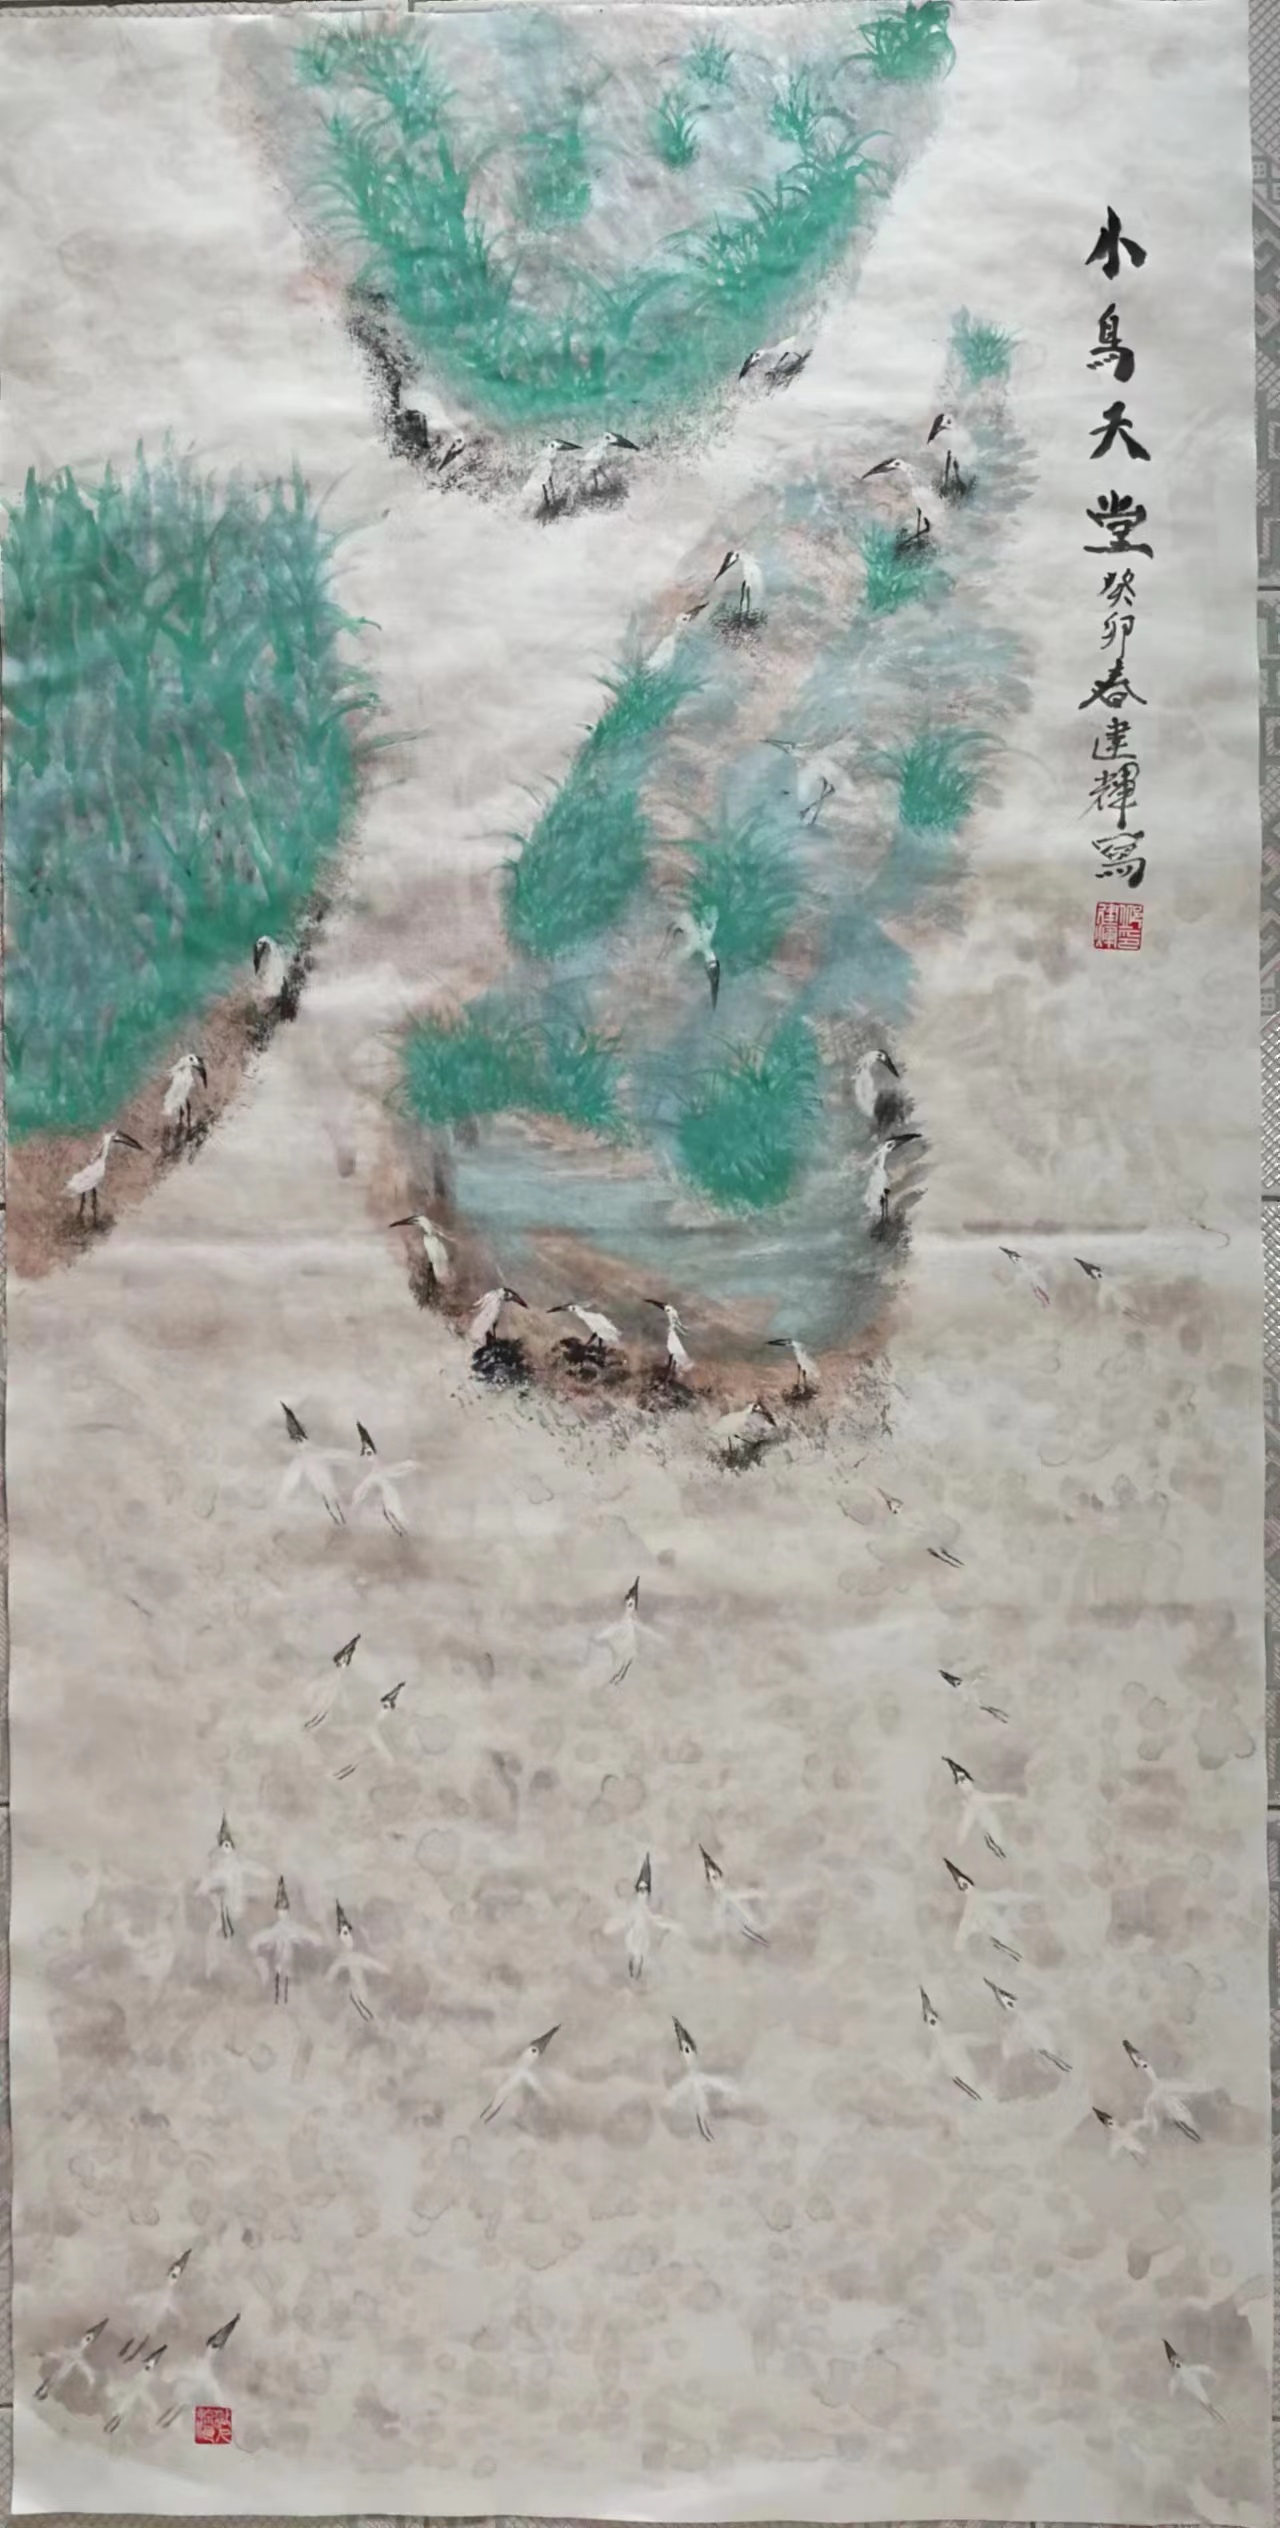 小鳥天堂
癸卯春建輝寫